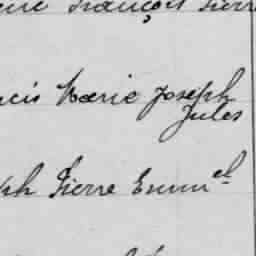 François Pierre
ncis Marie Joseph
Jules
ph Pierre Emm^el